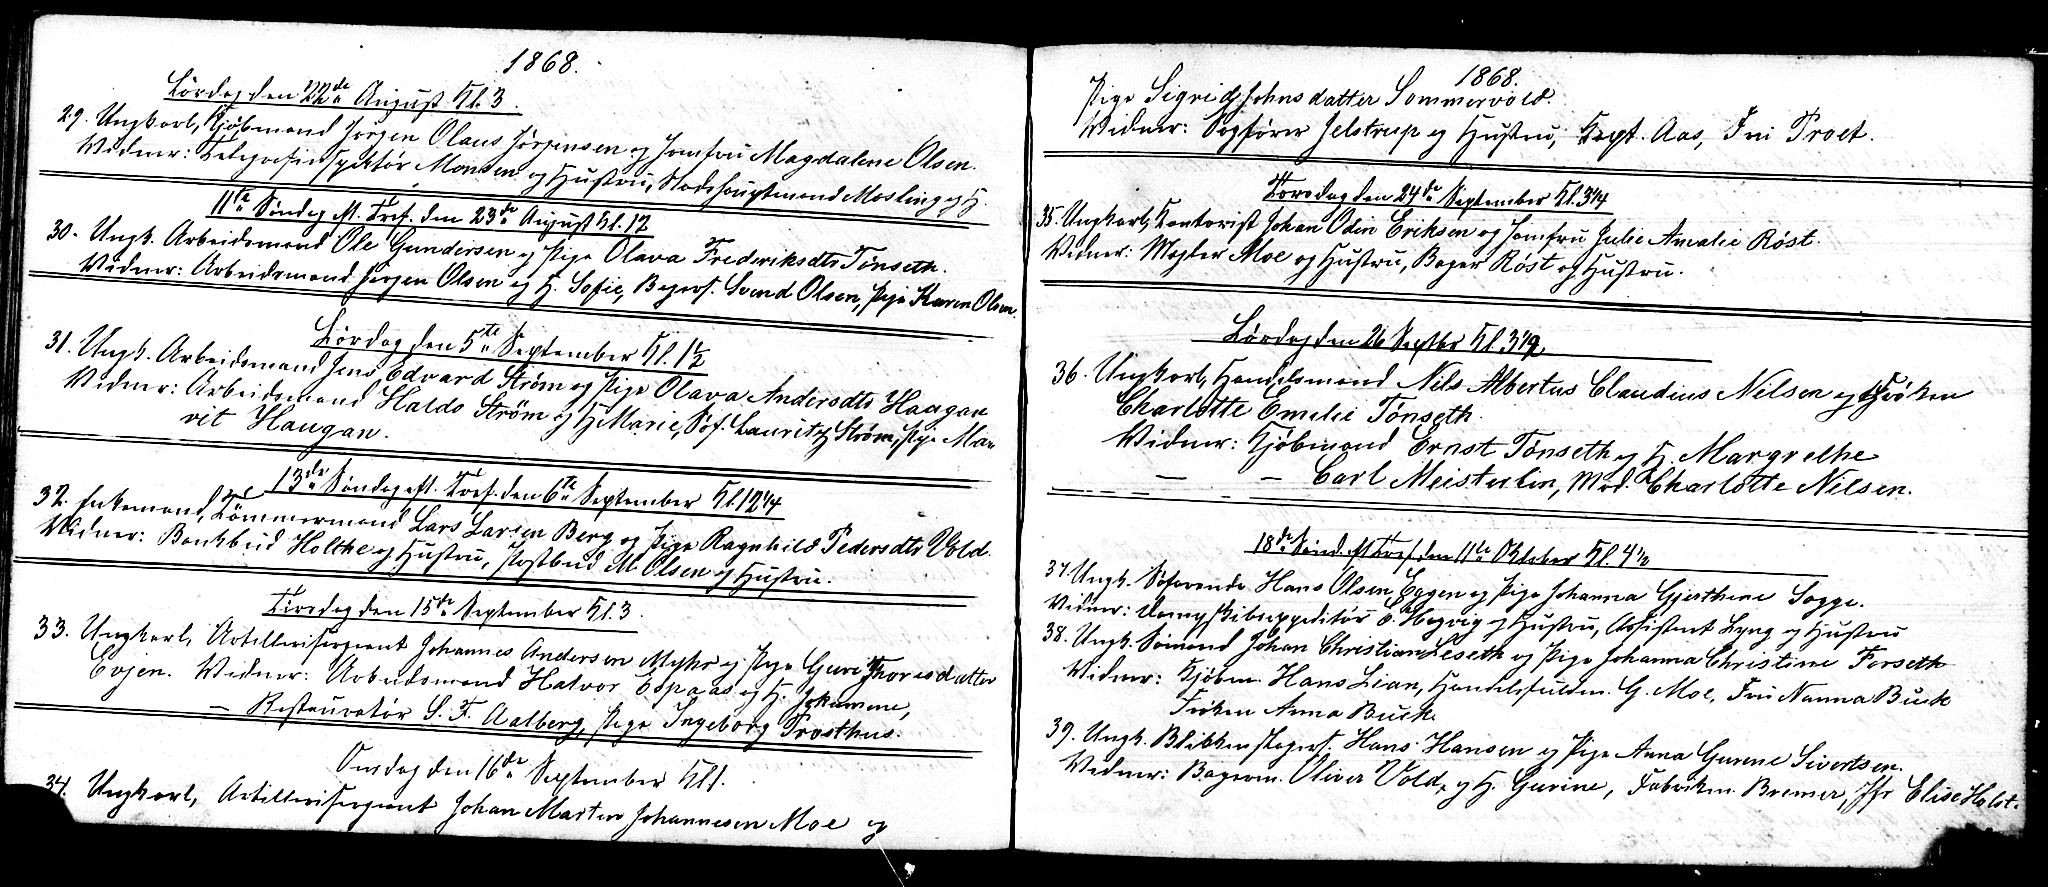 1868.
Lørdag den 22de August Kl. 3.
29. Ungkarl, Kjøbmand Jørgen Olaus Jørgensen og Jomfru Magdalene Olsen.
Vidner: Telegrafinspektør Monsen og Hustru, Stadshauptmand Mosling og H.
11te Søndag e. Tref. den 23de August Kl. 12
30. Ungk. Arbeidsmand Ole Gundersen og Pige Olava Frederiksdtr Tønseth.
Vidner: Arbeidsmand Jørgen Olsen og H. Sofie, Bagers. Svend Olsen, Pige Karen Olsen.
Lørdag den 5te September Kl. 1½
31. Ungk. Arbeidsmand Jens Edvard Strøm og Pige Olava Andersdtr Haugan
Vidner: Arbeidsmand Haldo Strøm og H. Marie, Søf. Lauritz Strøm, Pige Ma-
rit Haugan.
13de Søndag eft. Tref. den 6te September Kl. 12¼
32. Enkemand, Tømmermand Lars Larsen Berg og Pige Ragnhild Pedersdtr Vold.
Vidner: Bankbud Holthe og Hustru, Postbud M. Olsen og Hustru.
Tirsdag den 15de September Kl. 3.
33. Ungkarl, Artillerisergeant Johannes Andersen Myhr og Pige Guri Thoresdatter
Evjen. Vidner: Arbeidsmand Halvor Espaas og H. Johanne,
— Restauratør S. F. Aalberg, Pige Ingeborg Prosthus.
Onsdag den 16de September Kl. 1.
34. Ungkarl, Artillerisergeant Johan Martin Johannesen Moe og
1868.
Pige Sigrid Johnsdatter Sommervold.
Vidner: Sagfører Jelstrup og Hustru, Kapt. Aas, Fru Proet.
Torsdag den 24de September Kl. 3¼
35. Ungkarl, Kontorist Johan Odin Eriksen og Jomfru Julie Amalie Røst.
Vidner: Mægler Moe og Hustru, Bager Røst og Hustru.
Lørdag den 26 Septbr Kl. 3½
36. Ungkarl, Handelsmand Nils Albertus Claudius Nilsen og Frøken
Charlotte Emilie Tønseth.
Vidner: Kjøbmand Ernst Tønseth og H. Margrethe
— — Carl Meisterlin, Mad. Charlotte Nilsen.
18de Sønd. eft Tref. den 11te Oktober Kl. 4½
37. Ungk. Søfarende Hans Olsen Eggen og Pige Johanna Gjerthine Sogge.
Vidner: Dampskibsexpeditør C. Høgvig og Hustru, Assistent Lyng og Hustru
38. Ungk. Sømand Johan Christian Leseth og Pige Johanna Christine Forseth
Vidner: Kjøbm. Hans Lian, Handelsfuldm. G. Moe, Fru Nanna Buck
Frøken Anna Buck.
39. Ungk. Blikkenslagers. Hans Hansen og Pige Anna Gurine Sivertsen.
Vidner: Bagerm. Oliver Vold, og H. Gurine, Fabrikm. Bremer, Jfr Elise Holst.